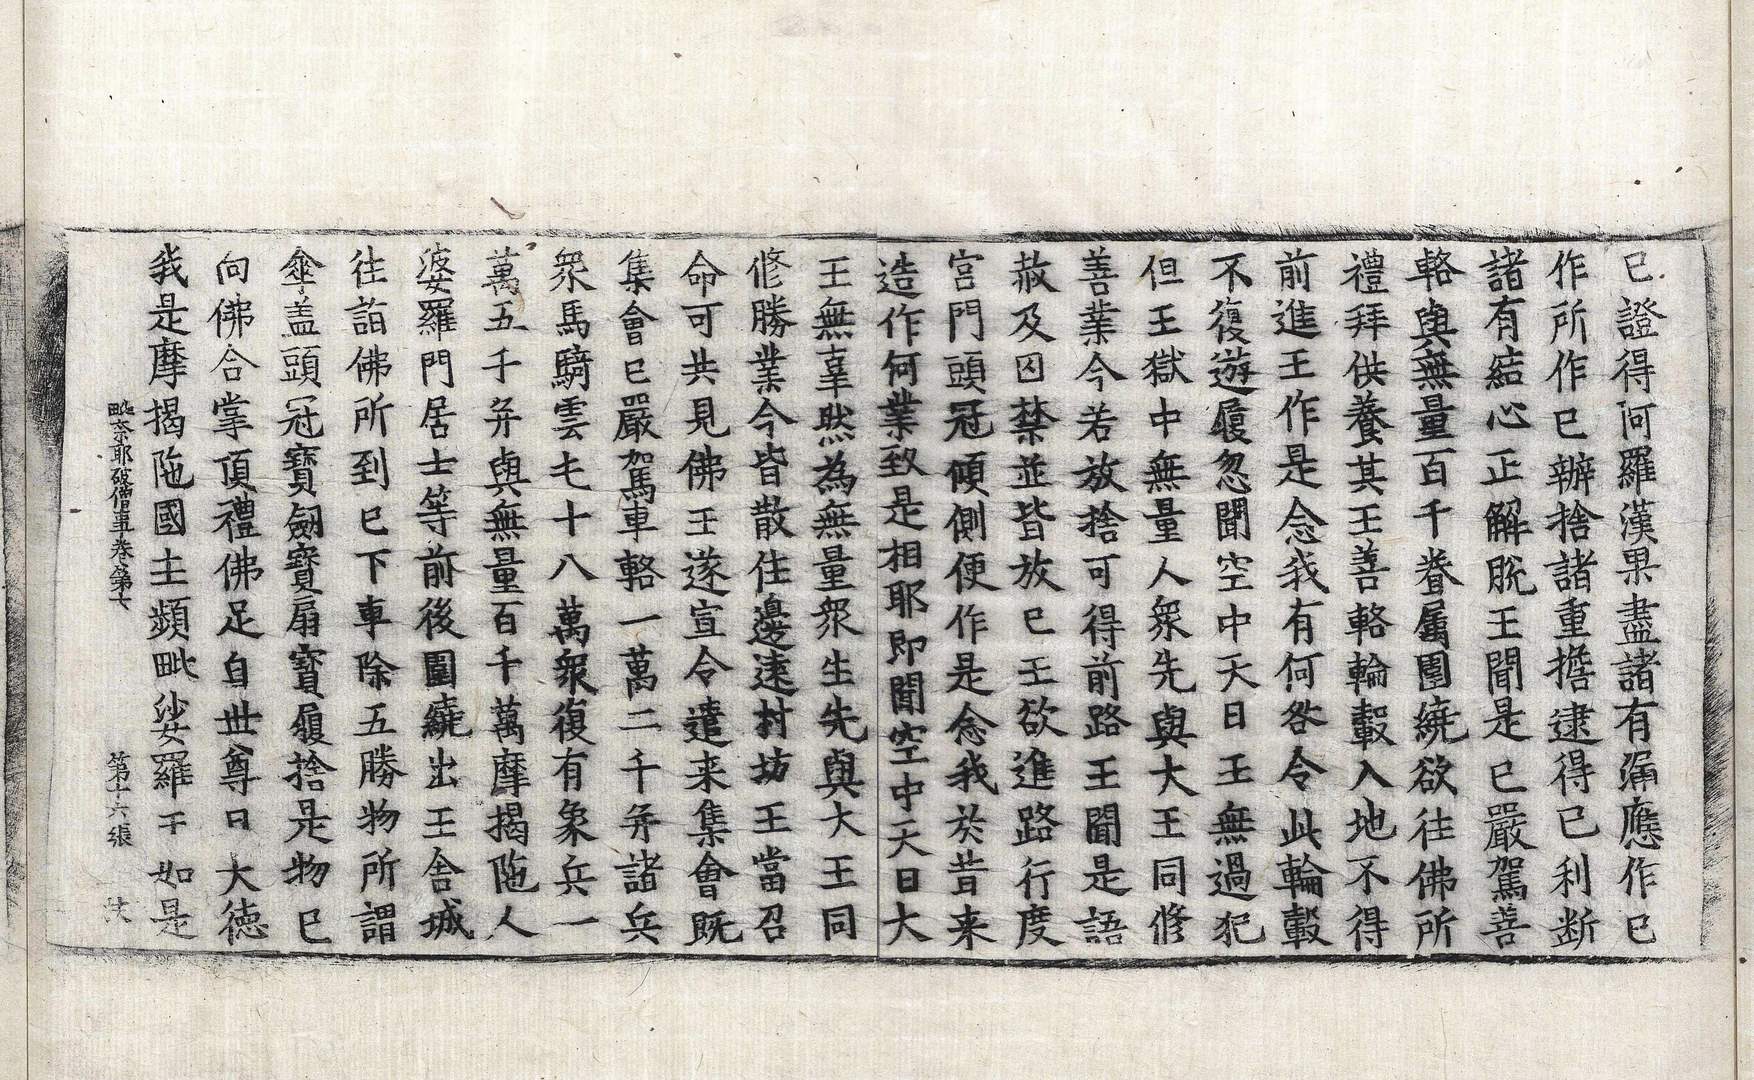 已證得阿羅漢果盡諸有漏應作已
作所作已辦捨諸重擔逮得已利斷
諸有結心正解脫王聞是已嚴駕善
輅與無量百千眷屬圍繞欲往佛所
禮拜供養其王善輅輪轂入地不得
前進王作是念我有何咎令此輪轂
不復遊履忽聞空中天曰王無過犯
但王獄中無量人衆先與大王同修
善業今若放捨可得前路王聞是語
赦及囚禁並皆放已王欲進路行度
宮門頭冠傾側便作是念我於昔来
造作何業致是相耶即聞空中天曰大
王無辜然為無量衆生先與大王同
修勝業今皆散住邊遠村坊王當召
命可共見佛王遂宣令遣来集會既
集會已嚴駕車輅一萬二千并諸兵
衆馬騎雲七十八萬衆復有象兵一
萬五千并與無量百千萬摩揭陁人
婆羅門居士等前後圍繞出王舍城
往詣佛所到已下車除五勝物所謂
傘盖頭冠寶劒寶扇寶履捨是物已
向佛合掌頂禮佛足自世尊曰大德
我是摩揭陁國主頻毗娑羅王如是
毗奈耶破僧事卷第七　第十六張　扶